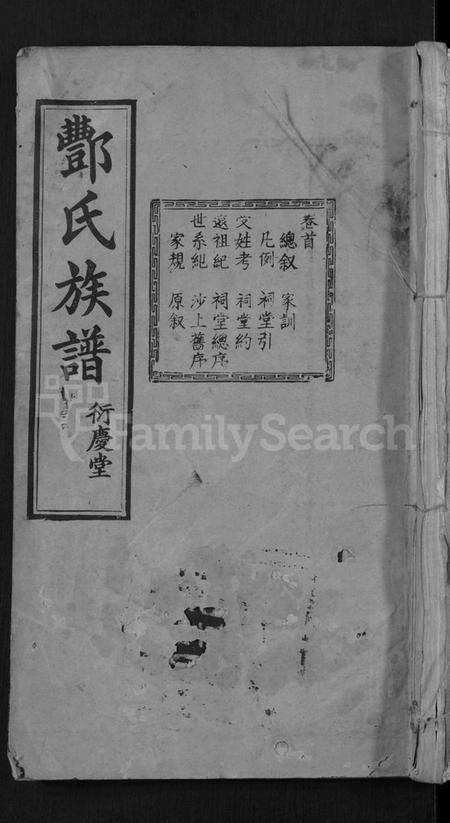 酆氏族譜
衍慶堂
卷首
總叙 家訓
凡例 祠堂引
受姓考 祠堂約
遠祖紀 祠堂總序
世系紀 沙上舊序
家規 原叙
FamilySearch